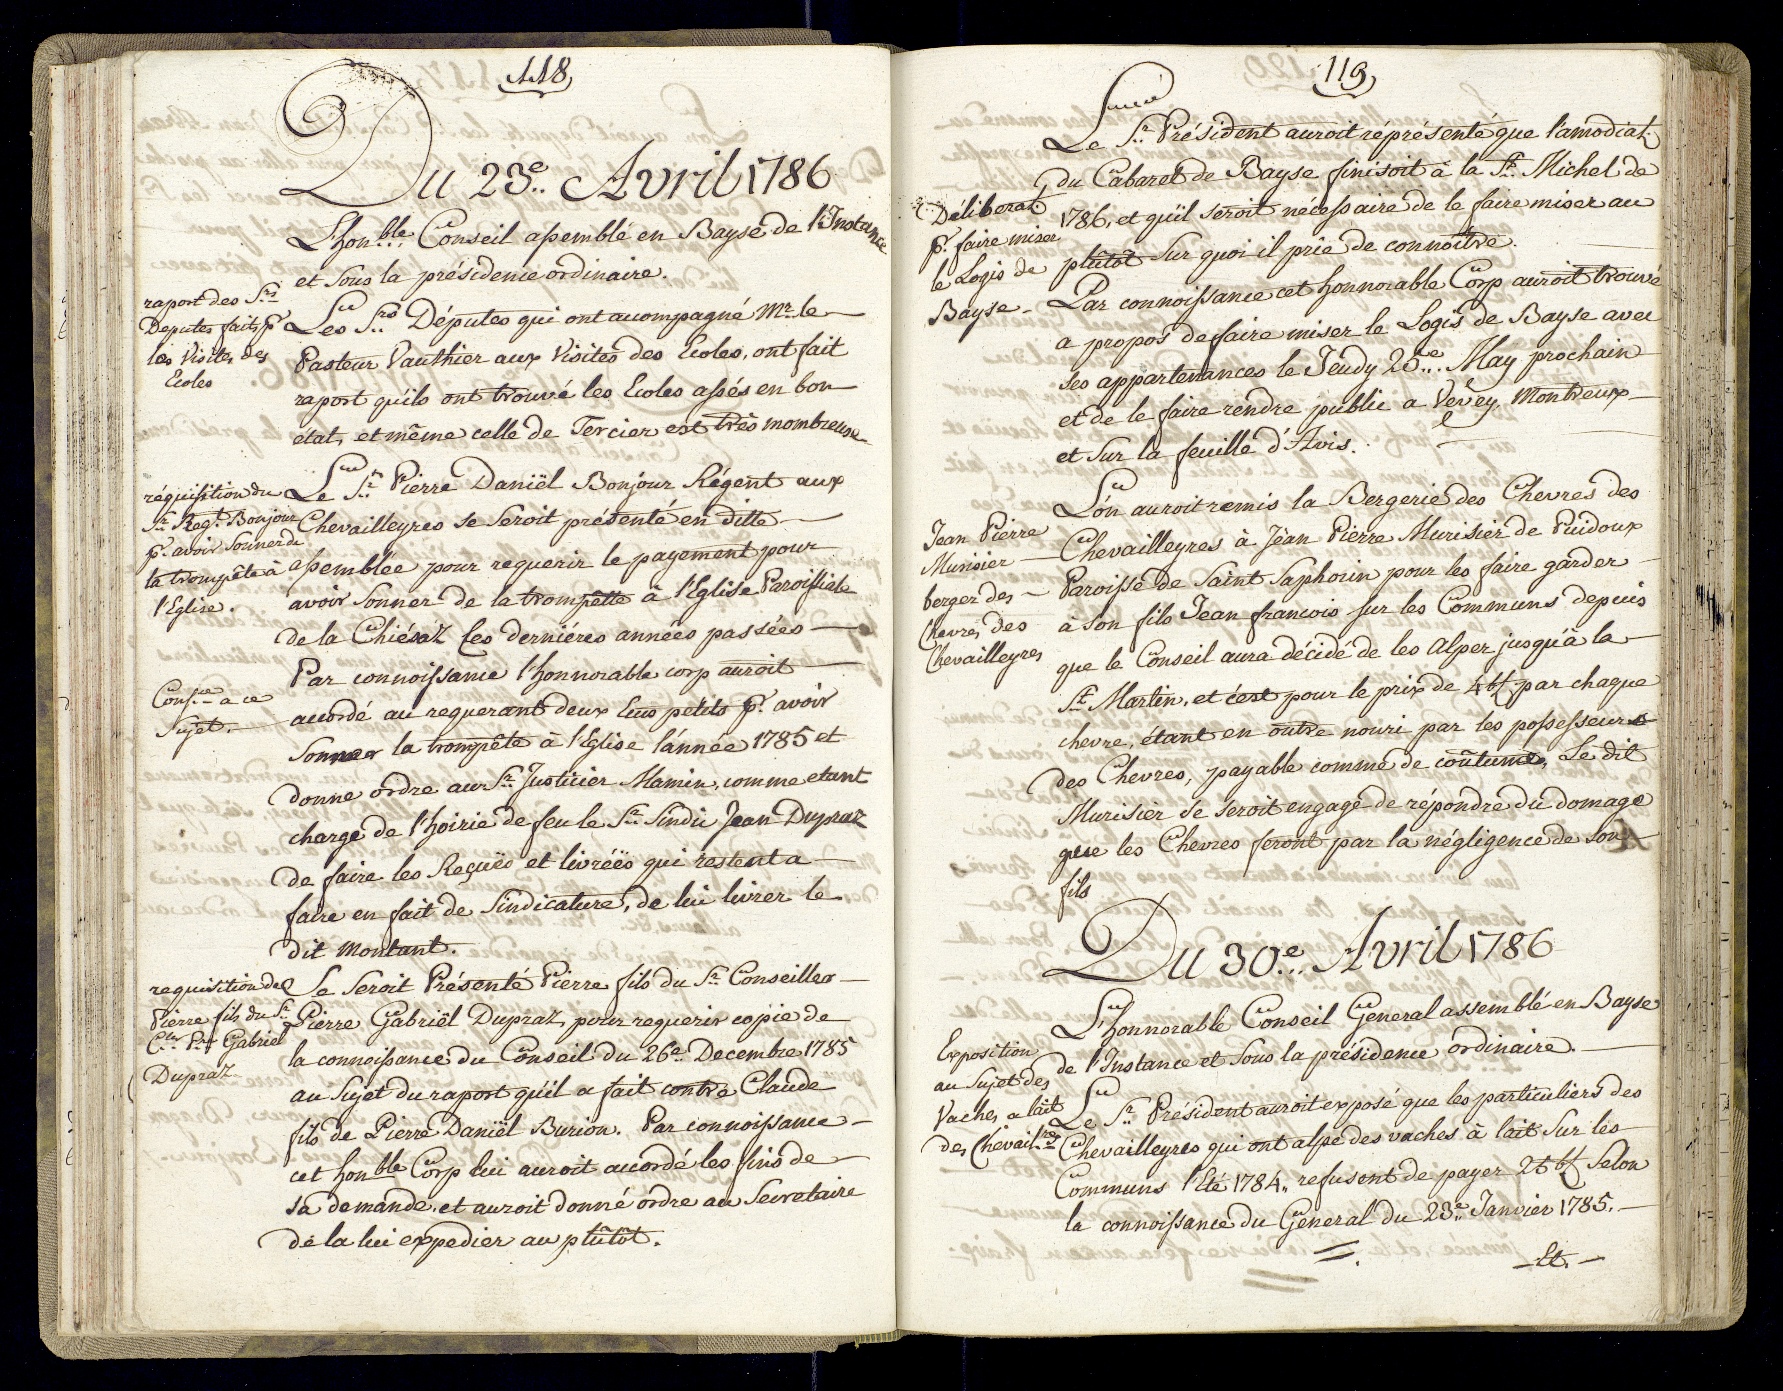 118
Du 23.e Avril 1786
L'hon.ble Conseil assemblé en Bayse de l'Instance
et sous la présidence ordinaire.
raport des S.rs
Deputes faits p.r
les Visites des
Ecoles
Les S.rs Députes qui ont accompagné Mr. le
Pasteur Vauthier aux Visites des Ecoles, ont fait
raport qu'ils ont trouvé les Ecoles assés en bon
état, et même celle de Tercier est très nombreuse
réquisition du
S.r Reg.t Bonjour
p.r avoir sonner de
la trompête à
l'Eglise.
Le S.r Pierre Daniël Bonjour Régent aux
Chevailleyres se seroit présenté en ditte
assemblée pour requerir le payement pour
avoir sonner de la trompêtte a l'Eglise Paroissiale
de la Chiésaz les derniéres années passées
Conss.ce a ce
Sujet.
Par connoissance l'honnorable corp auroit
acordé au requerant deux Ecus petits p.r avoir
sonner la trompête à l'Eglise l'année 1785 et
donne ordre au S.r Justicier Mamin, comme etant
charge de l'hoirie de feu le S.r Sindic Jean Dupraz
de faire les Reçuës et livréës qui restent a
faire en fait de Sindicature, de lui livrer le
dit montant.
requisition de
Pierre fils du S.r
C.ler P.re Gabriel
Dupraz
Se seroit Présenté Pierre fils du S.r Conseiller
Pierre Gabriël Dupraz, pour requerir copie de
la connoissance du Conseil du 26.e Decembre 1785
au Sujet du raport qu'il a fait contre Claude
fils de Pierre Daniël Burion. Par connoissance
cet hon.ble Corp lui auroit acordé les fins de
sa demande, et auroit donné ordre au Secretaire
de la lui expedier au plûtôt.
119
Le S.r Président auroit réprésenté que l'amodiat.
du Cabaret de Bayse finisoit à la S.t Michel de
1786, et qu'il seroit nécessaire de le faire miser au
plûtôt sur quoi il prie de connoitre.
Déliberat.
p.r faire miser
le Logis de
Bayse
Par connoissance cet honnorable Corp auroit trouvé
a propos de faire miser le Logis de Bayse avec
ses appartenances le Jeudy 25.me May prochain
et de le faire rendre public a Vevey Montreux
et sur la feuille d'Avis.
Jean Pierre
Murisier
berger des
Chevres des
Chevailleyres
L'on auroit remis la Bergerie des Chevres des
Chevailleyres à Jean Pierre Murisier de Puidoux
Paroisse de Saint Saphorin pour les faire garder
à son fils Jean françois sur les Communs depuis
que le Conseil aura décidé de les Alper jusqu'à la
S.t Martin, et c'est pour le prix de 4 bf. par chaque
chevre, étant en outre nouri par les possesseurs
des Chevres, payable comme de coûtume, Le dit
Murisier se seroit engagé de répondre du domage
que les Chevres feront par la négligence de son
fils
Du 30.e Avril 1786
L'honnorable Conseil General assemblé en Bayse
de l'Instance et sous la présidence ordinaire.
Exposition
au Sujet des
Vaches a lait
des Chevail.res
Le S.r Président auroit exposé que les particuliers des
Chevailleyres qui ont alpé des vaches à lait sur les
Communs l'Eté 1784, refusent de payer 25 bf. selon
la connoissance du General du 23.e Janvier 1785.
Et.